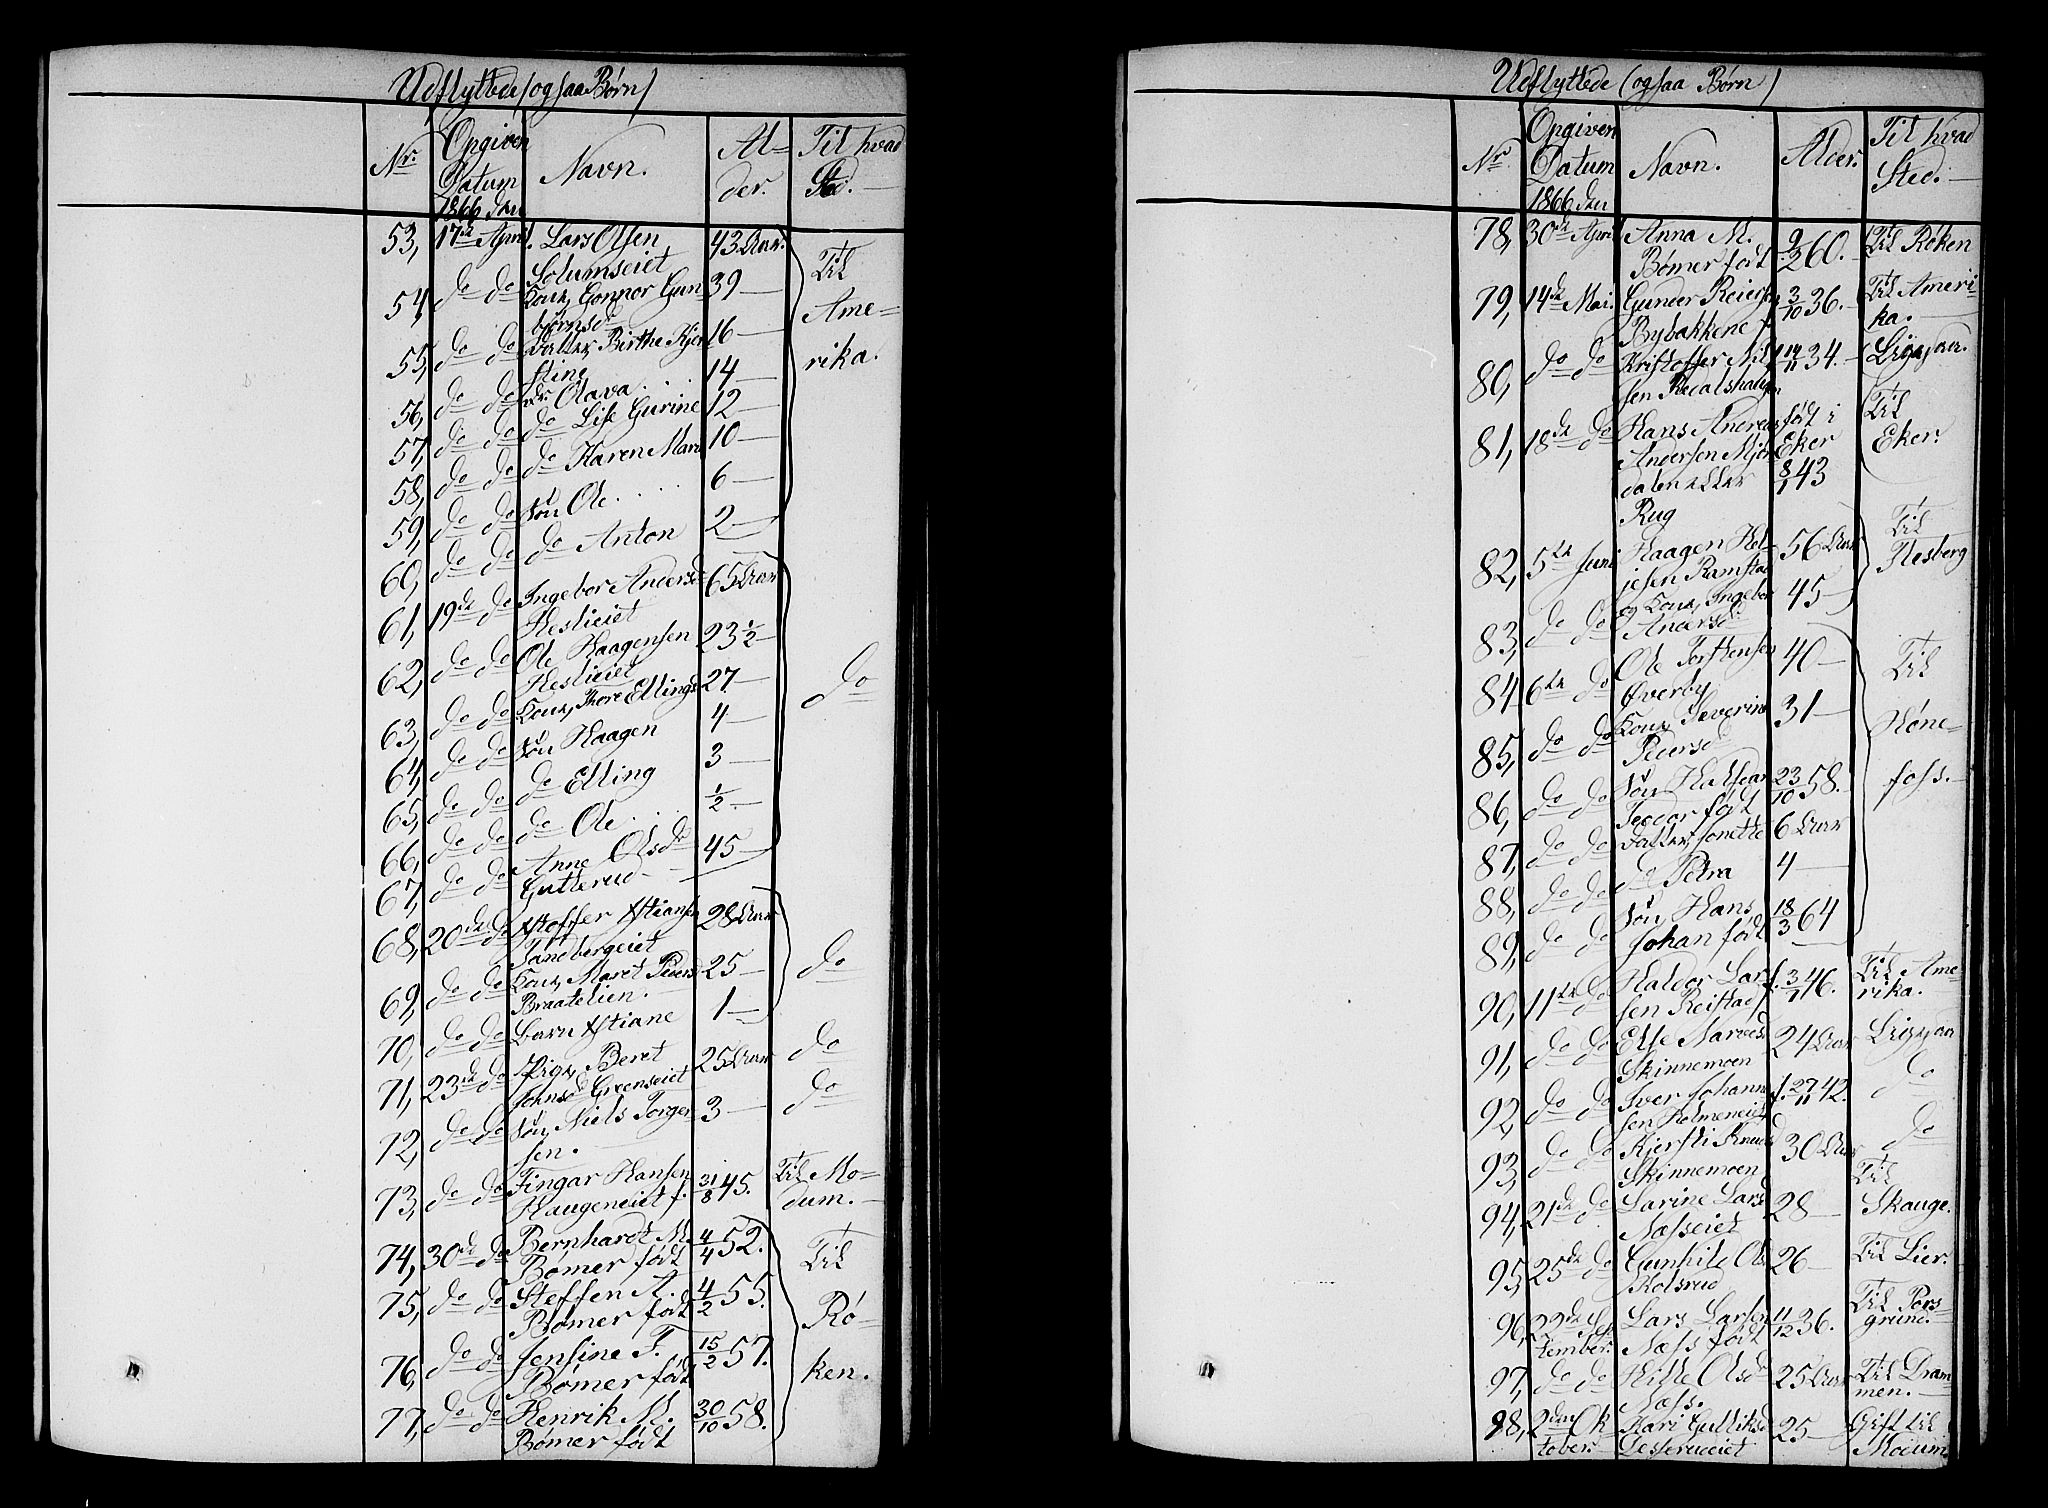 Udflyttede (ogsaa Børn)
Nr. Opgiven Datum 1866 den Navn. Alder. Til hvad Sted.
53, 17de April. Lars Olsen 43 Aar. Til Amerika.
Solumseiet
54, do do Kone, Gonnor Gun 39 —
bjørnsd
55, do do Datter Birthe Kjer 16 —
stine
56, do do do Olava . . 14 —
57, do do do Lise Gurine 12 —
58, do do do Karen Mari 10 —
59, do do Søn Ole . . . . 6 —
60, do do do Anton 2 —
61, 19de do Ingebor Andersd 65 Aar do
Heslieiet
62, do do Ole Haagensen 23 1/2 —
Heslieiet
63, do do Kone, Thore Ellings 27 —
64, do do Søn Haagen 4 —
65, do do do Elling 3 —
66, do do do Ole . . . 1/2 —
67, do do Anne Olsd 45 —
Gutterud
68, 20de do Xstoffer Xstians 28 Aar do
Tandbergeiet
69, do do Kone, Maret Peders 25 —
Braatelien.
70, do do Barn Xstiane 1 —
71, 23de do Pige, Beret 25 Aar do
Johnsd Greenseiet
72, do do Søn, Niels Torger 3 — do
sen.
73, do do Fingar Hansen 31/8 45. Til Mo-
Haugeneiet f. dum. —
74, 30de do Bernhardt M. 4/4 52. Til Røken.
Bømer født
75, do do Steffen A. 4/2 55.
Bømer født
76, do do Jensine F. 15/2 57.
Bømer født
77, do do Henrik M. 30/10 58.
Bømer født
Udflyttede (ogsaa Børn)
Nr. Opgiven Datum 1866 den Navn. Alder. Til hvad Sted. —
78, 30de April Anna M. 9/2 60. Til Røken
Bømer født
79, 14de Mai. Gunder Reiersen 3/10 36. Til Ameri-
Bybakkene f. ka. —
80, do do Kristoffer Nil 14/11 34. Ligesaa.
sen
81, 18de do Hans Andreas født i Til
Andersen Mjøn Eker Eker.
dalen eller 8/1 43
Rug
82, 5te Juni Haagen Hel- 56 Aar Til
jesen Ramstad Flesberg
83, do do og Kone, Ingebor 45 —
Andersd
84, 6te do Ole Torstensen 40 — Til Hønefoss. —
Øverby
85, do do Kone, Severine 31 —
Pedersd
86, do do Søn Halfdan 23/10 58.
Teodor født
87, do do Datter, Jonette 6 Aar
88, do do do Petra 4 —
89, do do Søn, Hans 18/3 64
Johan født
90, 11te do Haldor Lar f. 3/1 46. Til Ame-
sen Reistad rika.
91, do do Else Narvesd 24 Aar Ligesaa
Skinnemoen
92, do do Iver Johanne f. 27/11 42. do
sen Holmeneiet
93, do do Kjersti Knudsd 30 Aar do
Skinnemoen
94, 21de do Larine Larsd 28 — Til
Næsseiet Skauge.
95, 25de do Gunhild Ols 26 — Til Lier.
Rolsrud
96, 22de Sep Lars Larsen 11/12 36. Til Pors-
tember. Næss født grund.
97, do do Hille Olsd 25 Aar Til Dram-
Næss. men. —
98, 2den Ok Kari Gulliksd 25 — Gift til
tober. Modum